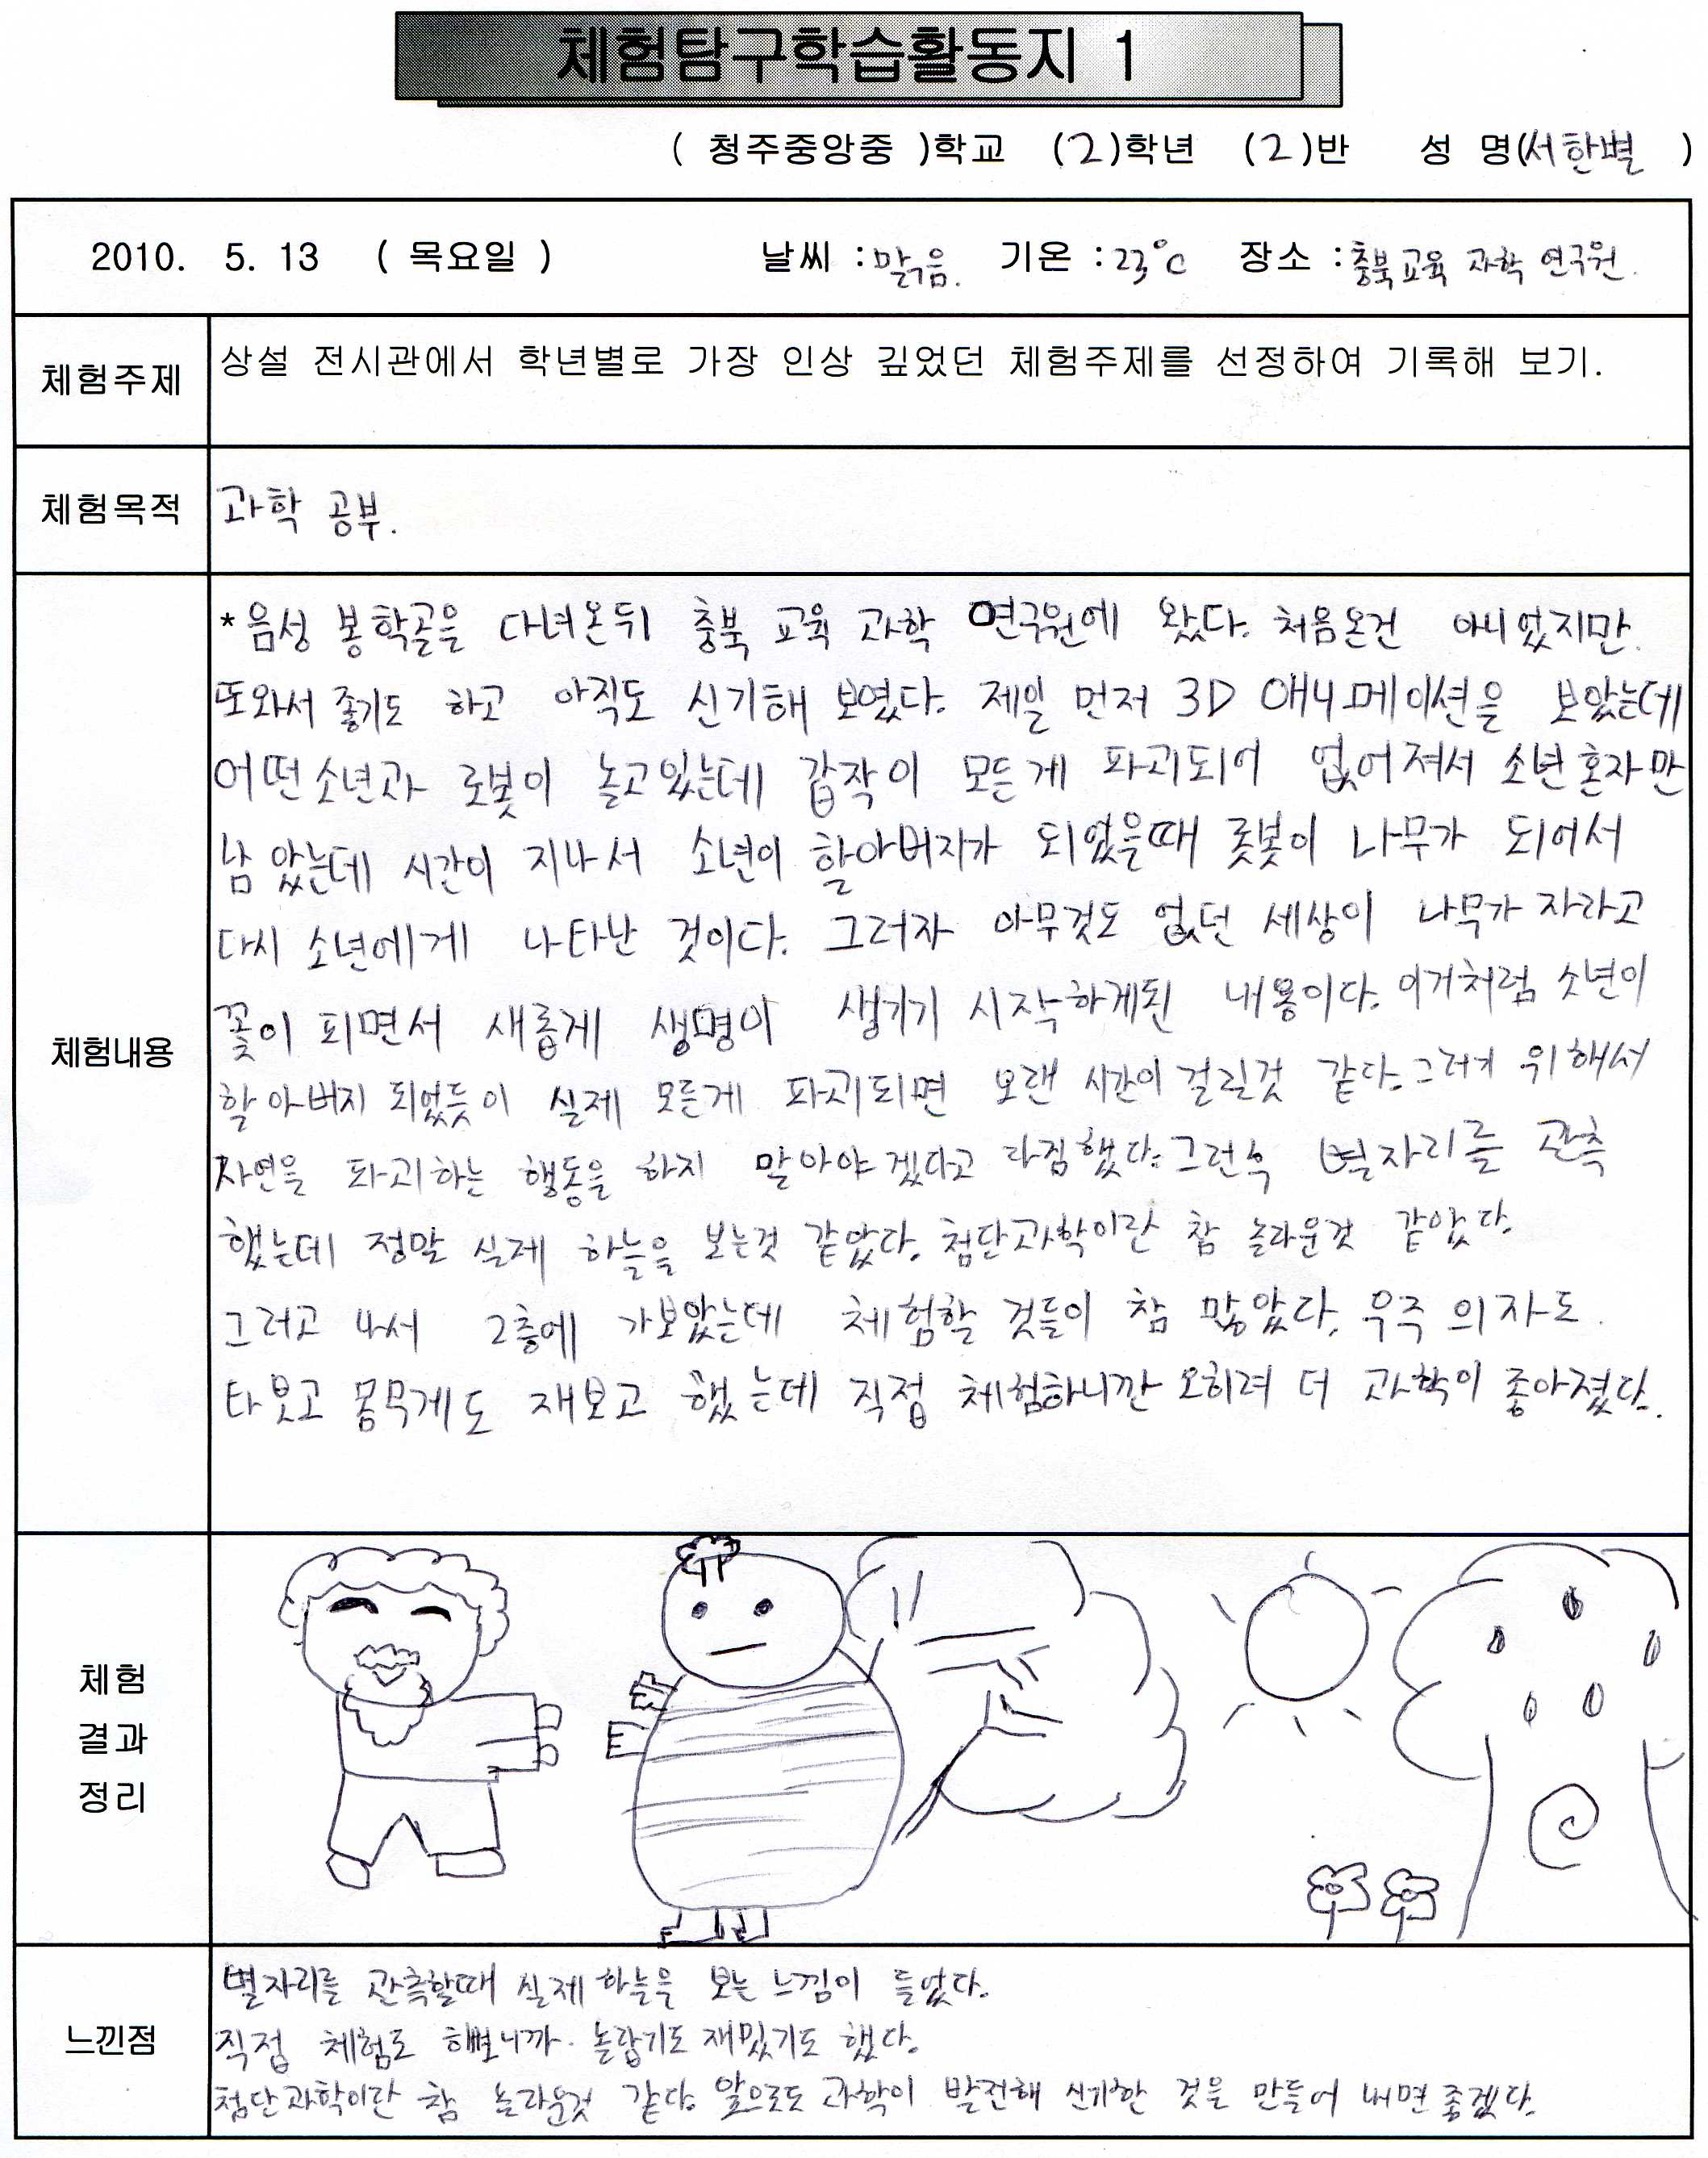 체험탐구학습활동지 1
( 청주중앙중 )학교 (2)학년 (2)반 성 명(서한별 )
2010. 5. 13 ( 목요일 ) 날씨 : 맑음. 기온 : 23°C 장소 : 충북교육 과학 연구원.
체험주제
상설 전시관에서 학년별로 가장 인상 깊었던 체험주제를 선정하여 기록해 보기.
체험목적
과학 공부.
체험내용
*음성 봉학골을 다녀온뒤 충북 교육 과학 연구원에 왔다. 처음온건 아니었지만.
또와서 좋기도 하고 아직도 신기해 보였다. 제일 먼저 3D 애니메이션을 보았는데
어떤소년과 로봇이 놀고있는데 갑작이 모든게 파괴되어 없어져서 소년혼자만
남았는데 시간이 지나서 소년이 할아버자가 되었을때 롯봇이 나무가 되어서
다시 소년에게 나타난 것이다. 그러자 아무것도 없던 세상이 나무가 자라고
꽃이 피면서 새롭게 생명이 생기기 시작하게된 내용이다. 이거처럼 소년이
할아버지 되었듯이 실제 모든게 파괴되면 오랜 시간이 걸릴것 같다. 그러기 위해서
자연을 파괴하는 행동을 하지 말아야겠다고 다짐했다. 그런후 별자리를 관측
했는데 정말 실제 하늘을 보는것 같았다. 첨단과학이란 참 놀라운것 같았다.
그러고 나서 2층에 가보았는데 체험할 것들이 참 많았다. 우주 의자도.
타보고 몸무게도 재보고 했는데 직접 체험하니깐 오히려 더 과학이 좋아졌다.
체험
결과
정리
느낀점
별자리를 관측할때 실제 하늘을 보는 느낌이 들었다.
직접 체험도 해보니까 놀랍기도 재밌기도 했다.
첨단과학이란 참 놀라운것 같다. 앞으로도 과학이 발전해 신기한 것을 만들어 내면 좋겠다.